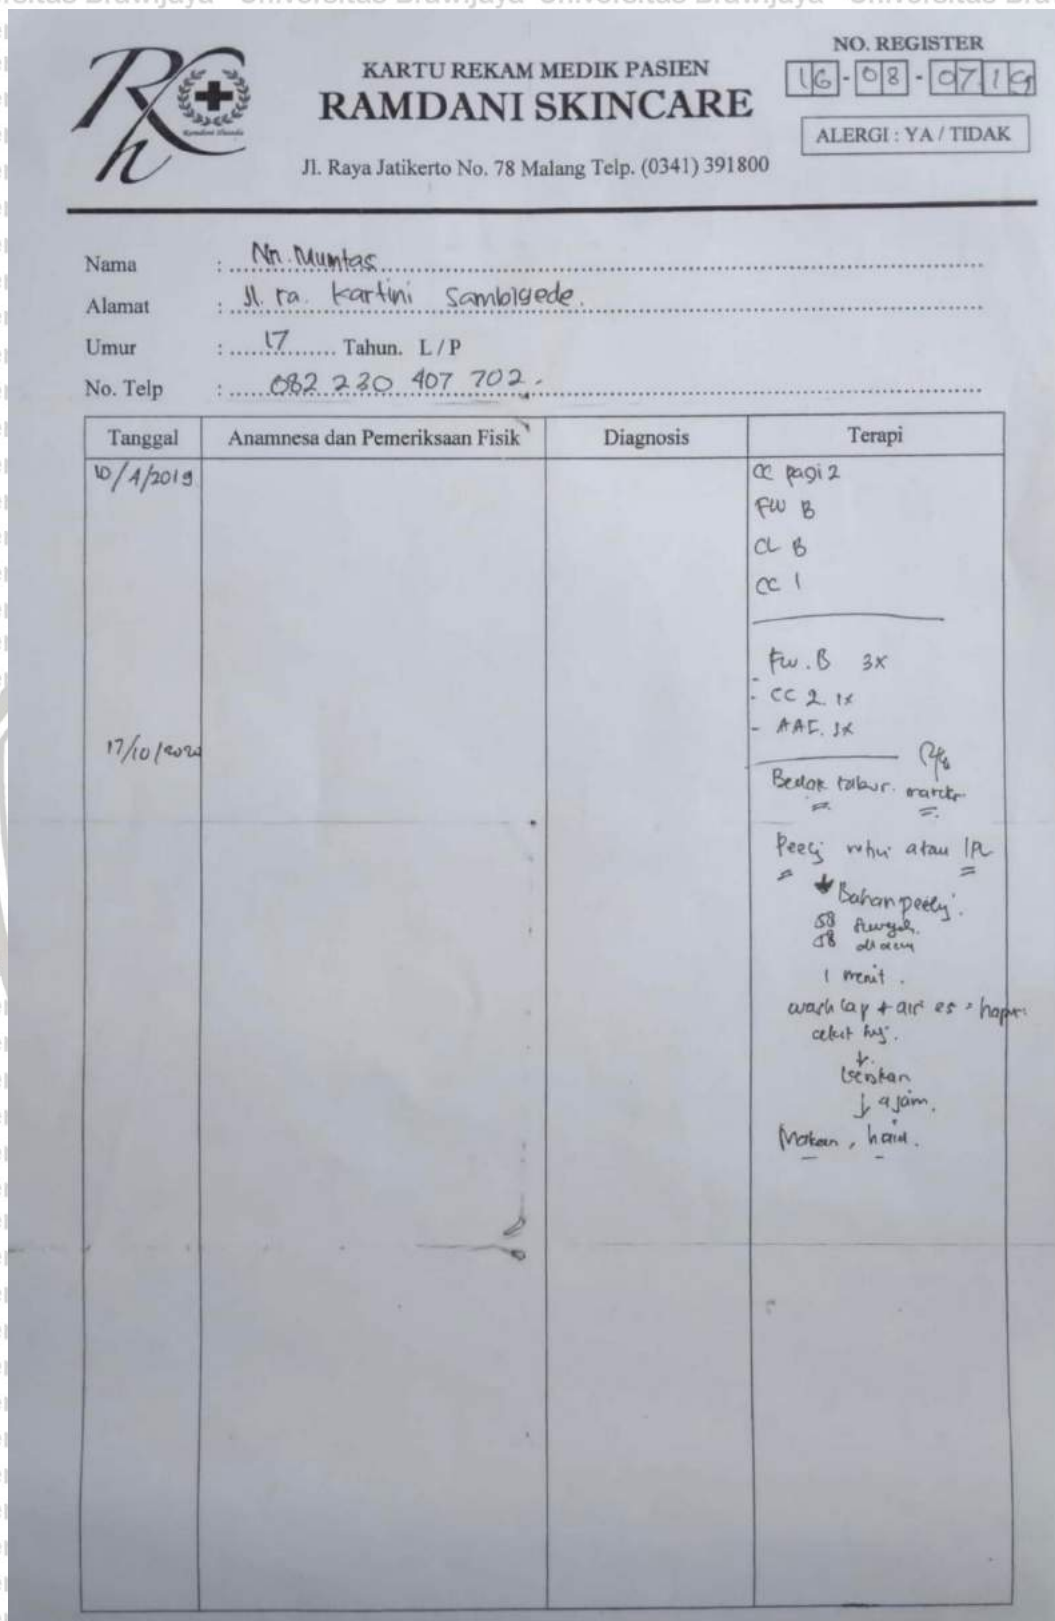 Universitas Brawijaya Universitas Brawijaya Universitas Brawijaya
KARTU REKAM MEDIK PASIEN
RAMDANI SKINCARE
Jl. Raya Jatikerto No. 78 Malang Telp. (0341) 391800
NO. REGISTER
16-08-0719
ALERGI : YA / TIDAK
Nama : Nn. Mumtas
Alamat : Jl. ra. kartini Sambigede.
Umur : 17 Tahun. L / P
No. Telp : 082 230 407 702.
Tanggal Anamnesa dan Pemeriksaan Fisik Diagnosis Terapi
10/1/2019 CC pagi 2
FW B
CL B
CC 1
Fw. B 3x
- CC 2. 1x
- AAC.
17/10/2020
Bedak tabur.
atau IPL
Bahan
1 menit.
wash lap + air es
Makan, haid.